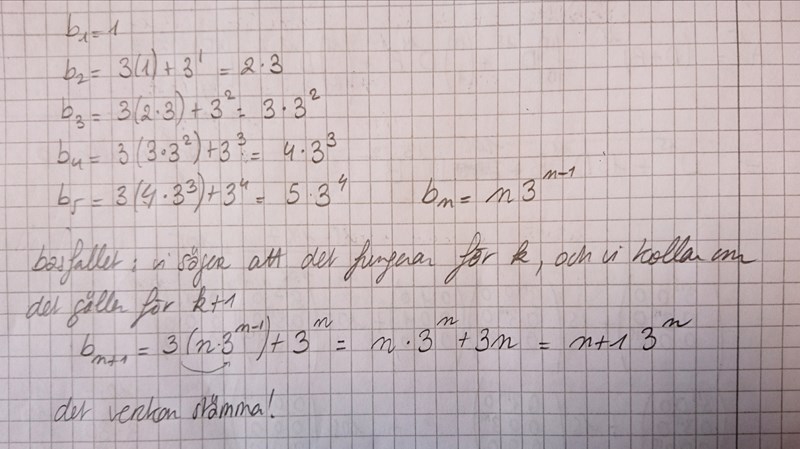 b₁ = 1
b₂ = 3(1) + 3¹ = 2·3
b₃ = 3(2·3) + 3² = 3·3²
b₄ = 3(3·3²) + 3³ = 4·3³
b₅ = 3(4·3³) + 3⁴ = 5·3⁴ bₙ = n3ⁿ⁻¹
basfallet: vi säger att det fungerar för k, och vi kollar om
det gäller för k+1
bₙ₊₁ = 3(n·3ⁿ⁻¹) + 3ⁿ = n·3ⁿ + 3n = n+1 3ⁿ
det verkar stämma!